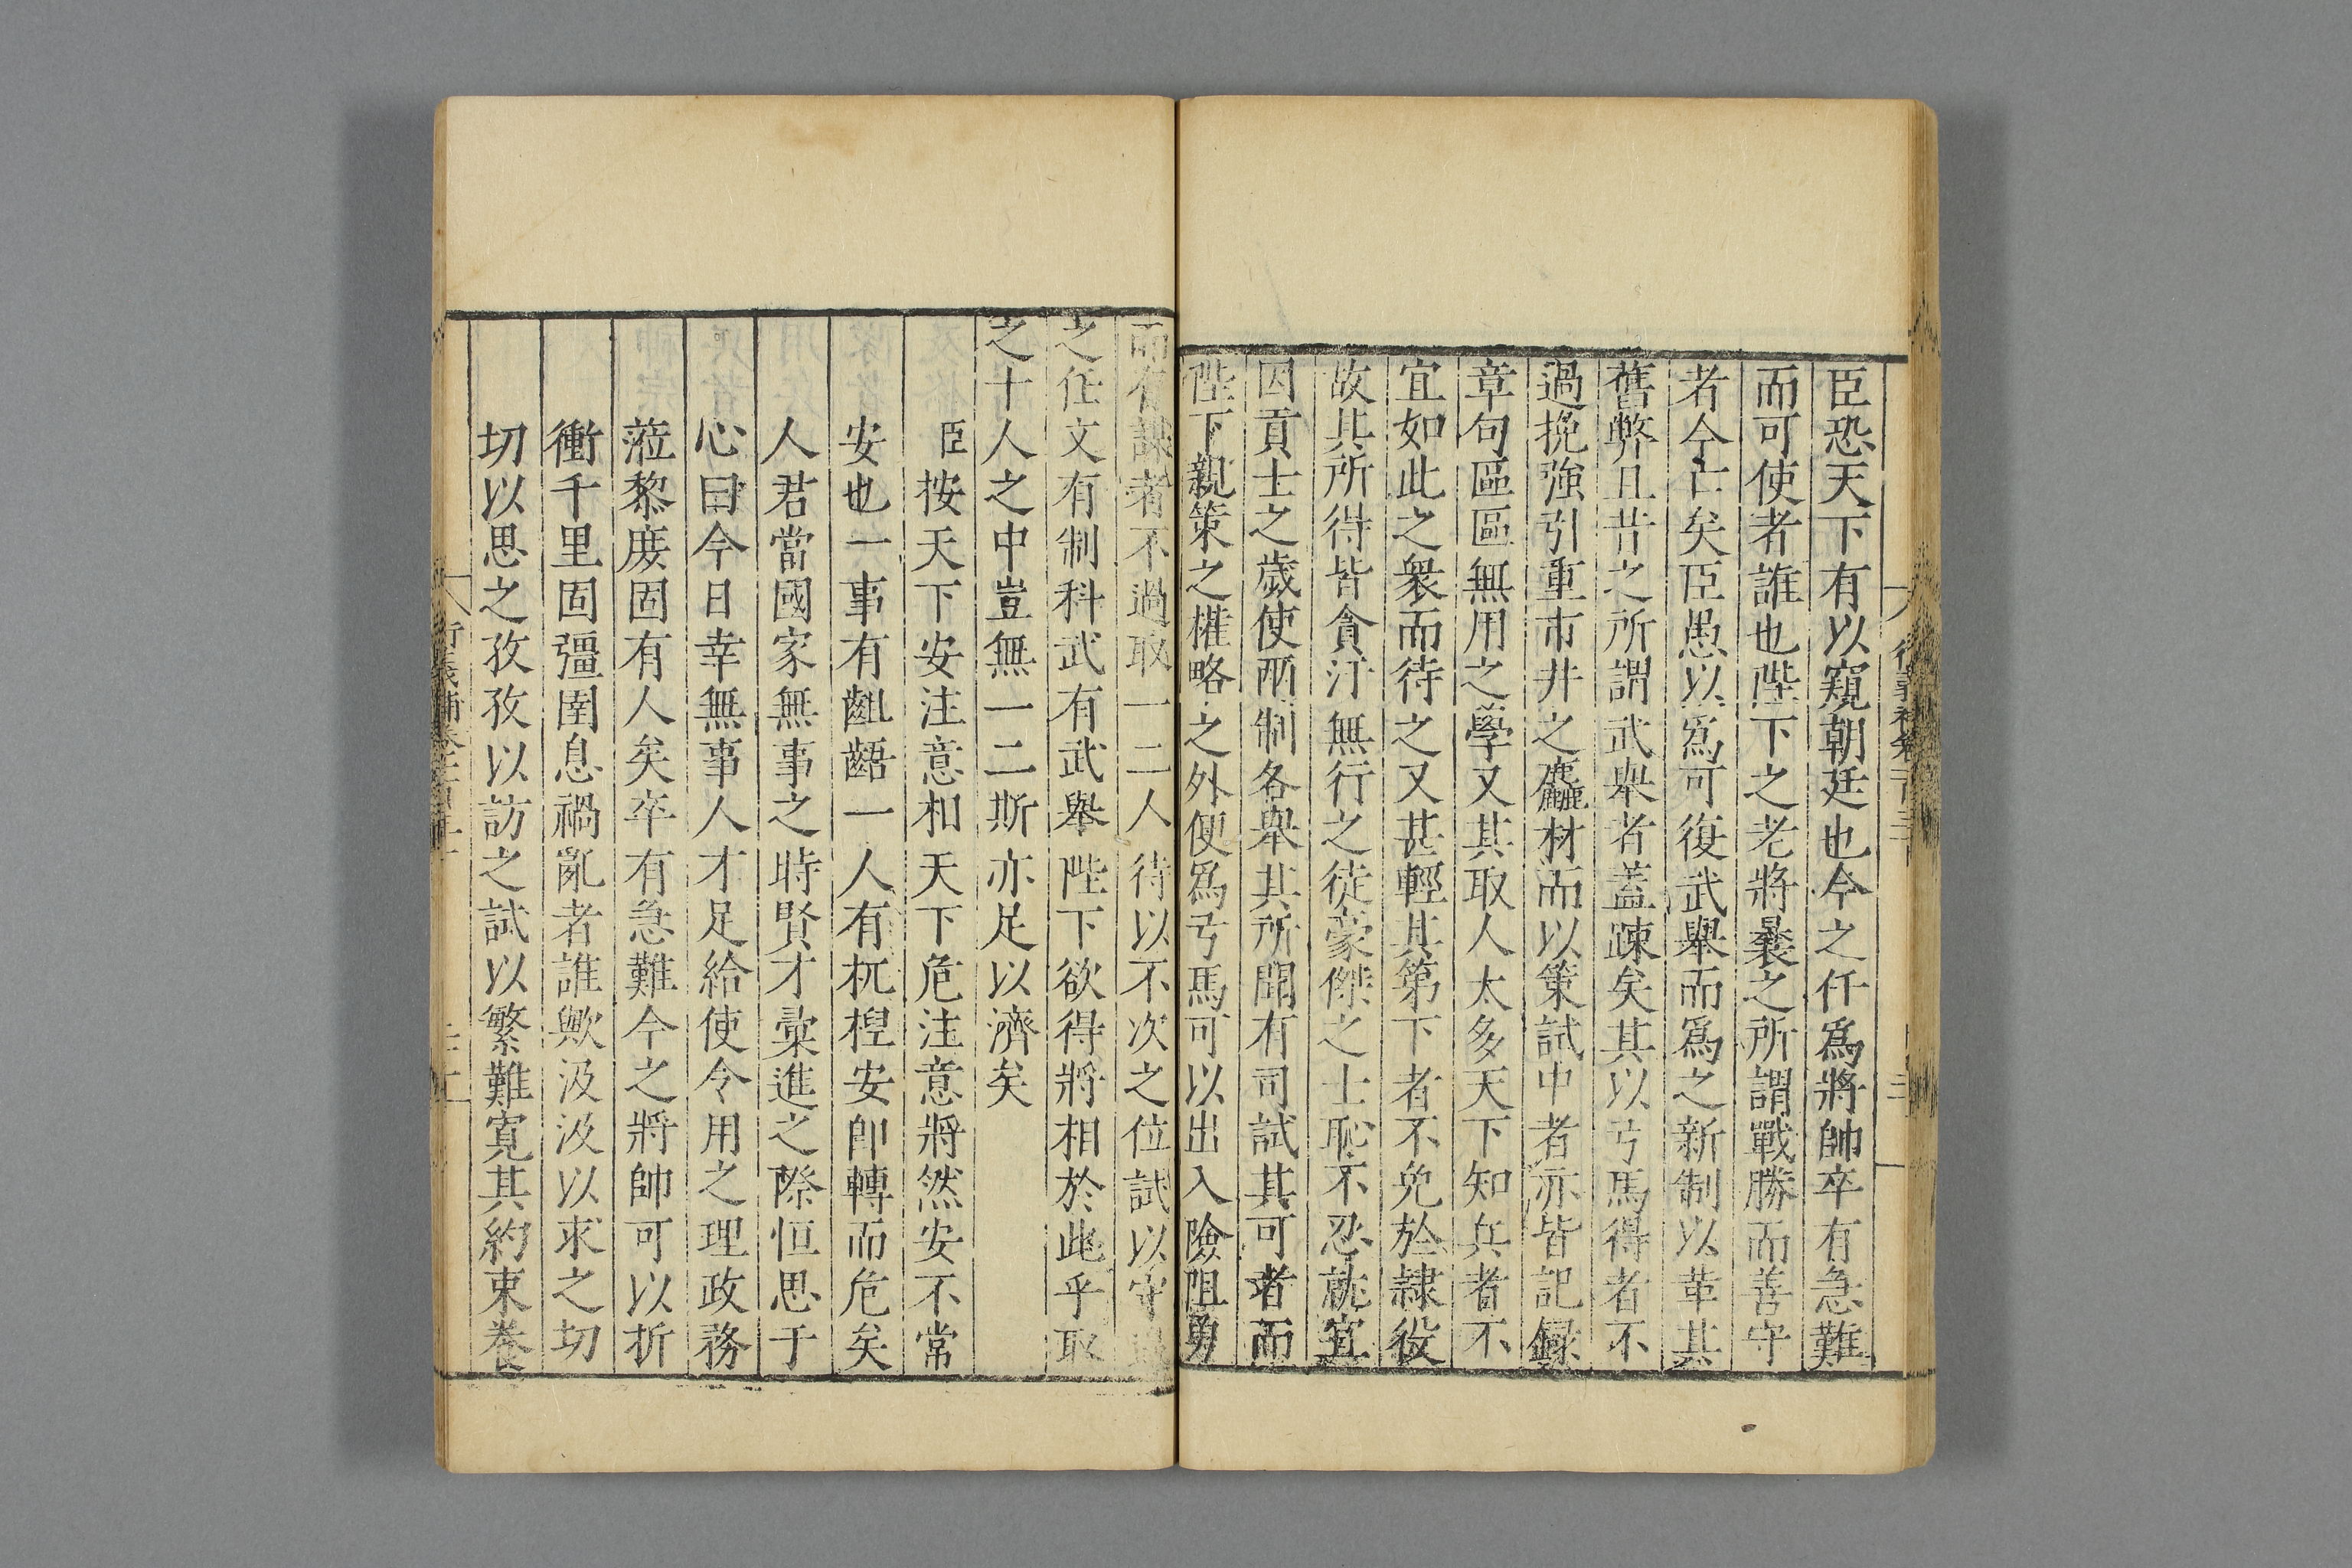 臣恐天下有以窺朝廷也今之任爲將帥卒有急難
而可使者誰也陛下之老將曩之所謂戰勝而善守
者今亡矣臣愚以爲可復武舉而爲之新制以革其
舊弊且昔之所謂武舉者蓋踈矣其以弓馬得者不
過挽強引重市井之麤材而以策試中者亦皆記録
章句區區無用之學又其取人太多天下知兵者不
宜如此之衆而待之又甚輕其第下者不免於隸役
故其所得皆貪汙無行之徒豪傑之士恥不忍就宜
因貢士之歲使兩制各舉其所聞有司試其可者而
陛下親策之權略之外便爲弓馬可以出入險阻勇
而有謀者不過取一二人待以不次之位試以守邊
之任文有制科武有武舉陛下欲得將相於此乎取
之十人之中豈無一二斯亦足以濟矣
臣按天下安注意相天下危注意將然安不常
安也一事有齟齬一人有杌隉安即轉而危矣
人君當國家無事之時賢才彙進之際恒思于
心曰今日幸無事人才足給使令用之理政務
蒞黎庶固有人矣卒有急難今之將帥可以折
衝千里固彊圉息禍亂者誰歟汲汲以求之切
切以思之孜孜以訪之試以繁難寬其約束養